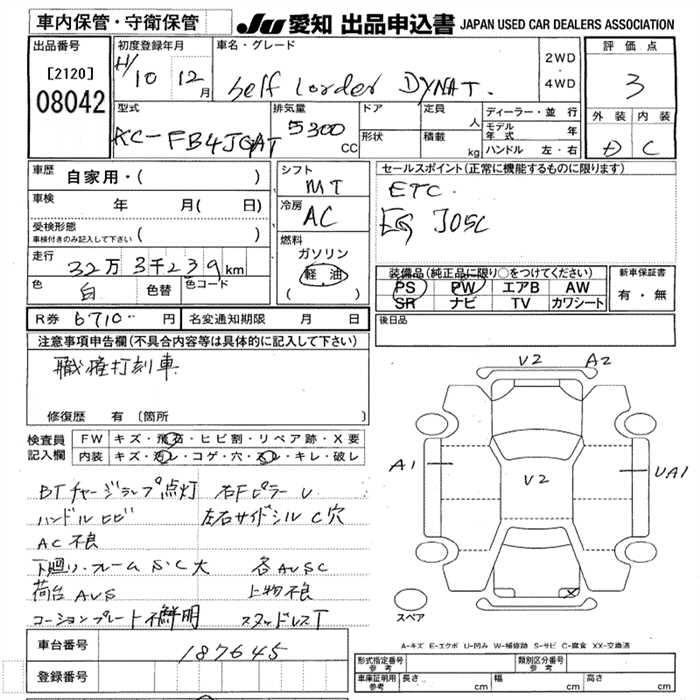 車内保管・守衛保管
JU 愛知 出品申込書 JAPAN USED CAR DEALERS ASSOCIATION
出品番号 初度登録年月 車名・グレード 2WD・4WD 評価点
[2120] H/10 12月 Self Lorder DYNAT. 3
08042
型式 排気量 ドア 定員 人 ディーラー・並行 外装 内装
KC-FB4JGAT 5300 CC 形状 積載 kg モデル年式 年 D C
ハンドル 左・右
車歴 自家用・( ) シフト セールスポイント(正常に機能するものに限ります)
MT ETC.
車検 年 月( 日) 冷房 EG J05C
AC
受検形態 ( )
車検付きのみ記入して下さい
燃料
走行 32万3千239km ガソリン
軽油
( )
色 白 色替 色コード
装備品(純正品に限り○をつけてください) 新車保証書
PS PW エアB AW 有・無
SR ナビ TV カワシート
R券 6710- 円 名変通知期限 月 日 後日品
注意事項申告欄(不具合内容等は具体的に記入して下さい)
職権打刻車
V2 A2
修復歴 有 〔箇所
検査員記入欄 FW キズ・飛石・ヒビ割・リペア跡・X要
内装 キズ・汚レ・コゲ・穴・スレ・キレ・破レ
A1 V2 UA1
BTチャージランプ点灯 右FピラーU
ハンドルヒビ 左右サイドシルC穴
AC不良
下廻り・フレームS・C大 各AUSC
荷台AUS 上物不良
コーションプレート不鮮明 スタッドレスT
X
スペア
車台番号 187645
A-キズ E-エクボ U-凹み W-補修跡 S-サビ C-腐食 XX-交換済
登録番号
形式指定番号 参考 類別区分番号 参考
車庫証明用 参考 長さ cm 幅 cm 高さ cm